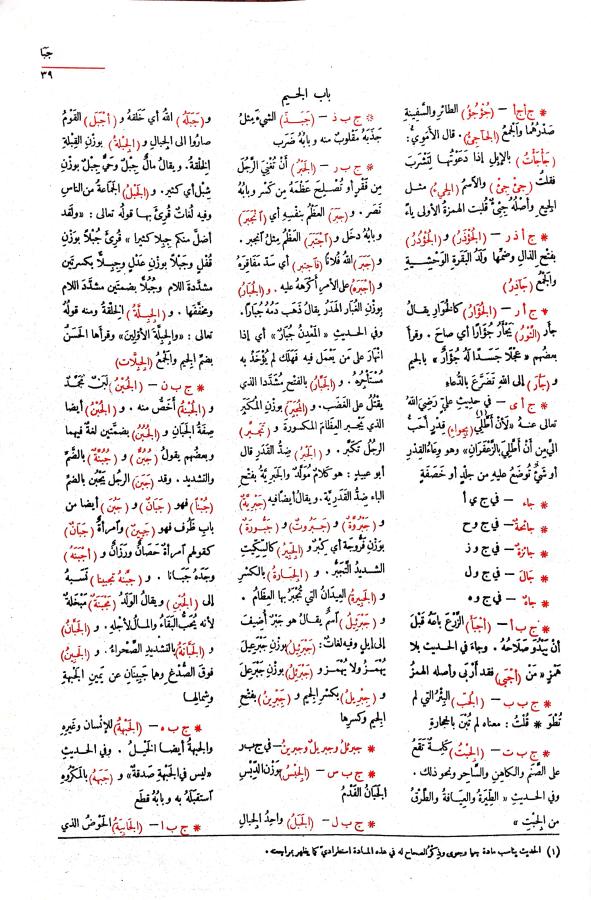 جبا
٣٩
باب الجيم
* ج أ ج أ – (جُؤْجُؤُ) الطائر والسَّفينة
صَدْرُهما والجَمْعُ (الجآجِئُ). قال الأُمَوِيُّ:
(جَأْجَأْتُ) بالإبل إذا دَعَوْتَها لِتَشْرَبَ
فقلتُ (جِئْ جِئْ) والاسمُ (الجِيءُ) مثل
الجِيع وأصلُه جِئْءٌ قُلِبت الهمزةُ الأولى ياءً
* ج أ ذ ر – (الجُؤْذَر) و (الجُؤْذُر)
بفتح الذال وضمِّها ولَدُ البَقَرة الوَحْشِيــة
والجَمْعُ (جَآذِر)
* ج أ ر – (الجُؤَار) كالخُوَار يقالُ
جأَر (الثَّوْرُ) يَجْأَرُ جُؤَارًا أي صاحَ. وقرأ
بعضُهم «عِجْلًا جَسَدًا لَهُ جُؤَارٌ» بالجيم
و (جَأَر) إلى الله تَضَرَّعَ بالدُّعاءِ
* ج أ ى – في حديث عليٍّ رَضِيَ اللهُ
تعالى عنه «لَأَنْ أَطَّلِيَ (بِجِواءِ) قِدْرٍ أَحَبُّ
إليَّ مِن أنْ أطَّلِيَ بالزَّعْفَرانِ» وهو وِعاءُ القِدْرِ
أو شَيْءٌ تُوضَعُ عليه مِن جِلْدٍ أو خَصَفَةٍ
* جاء – في ج ي أ
* جائحةٌ – في ج و ح
* جائزةٌ – في ج و ز
* جَالَ – في ج و ل
* جاهٌ – في ج و ه
* ج ب أ – (أجْبَأَ) الزَّرْعَ باعَهُ قَبْلَ
أنْ يَبْدُوَ صَلَاحُهُ. وجاءَ في الحديث بلا
هَمْزٍ «مَنْ (أَجْبَى) فقد أَرْبَى وأصله الهمز
* ج ب ب – (الجُبّ) البِئْرُ التي لم
تُطْوَ * قُلْتُ: معناه لم تُبْنَ بالحجارة
* ج ب ت – (الجِبْتُ) كَلِمَةٌ تَقَعُ
على الصَّنَمِ والكاهِنِ والسَّاحِرِ ونحو ذلك.
وفي الحديث «الطِّيَرَةُ والعِيَافَةُ والطَّرْقُ
من الجِبْتِ»
* ج ب ذ – (جَبَــذَ) الشيءَ مِثلُ
جَذَبَهُ مَقلوبٌ منه وبابُه ضَرَب
* ج ب ر – (الجَبْر) أنْ تُغْنِيَ الرَّجُلَ
مِن فَقْرٍ أو تُصْلِحَ عَظْمَهُ مِن كَسْرٍ وبابُه
نَصَر. و (جَبَرَ) العَظْمُ بنفسِهِ أي (انْجَبَر)
وبابُه دخَل و (اجْتَبَر) العَظْمُ مِثلُ انْجَبَر.
و (جَبَر) اللهُ فُلانًا (فاجتبر) أي سدَّ مَفاقِرَهُ
و (أَجْبَرَهُ) على الأمْرِ أكْرَهَهُ عليه. و (الجُبَار)
بوَزْن الغُبار الهَدَرُ يقالُ ذَهَب دَمُهُ جُبارًا.
وفي الحديث «المَعْدِنُ جُبَارٌ» أي إذا
انْهارَ على مَن يَعْمَل فيه فَهَلَك لم يُؤْخَذ به
مُسْتَأْجِرُه. و (الجَبَّارُ) بالفتح مُشَدَّدًا الذي
يَقْتُلُ على الغَضَب. و (المُجَبِّر) بوَزْن المُكَبِّر
الذي يَجْبُر العِظَامَ المكسورةَ و (تَجَبَّر)
الرجُلُ تَكَبَّر. و (الجَبْر) ضِدُّ القَدَرِ قال
أبو عبيدٍ: هو كلامٌ مُوَلَّدٌ والجَبَريَّةُ بفتح
الباءِ ضدُّ القَدَرِيَّة. ويقالُ أيضًا فيه (جَبْرِيَّةٌ)
و (جَبَرُوَّة) و (جَبَرُوت) و (جَبُّورَة)
بوَزْن فَرُّوجة أي كِبْر و (الجِبِّيرُ) كالسِّكِّيتِ
الشديدُ التَّجَبُّر. و (الجِبَارة) بالكَسْرِ
و (الجَبِيرة) العِيدَانُ التي تُجْبَرُ بها العِظامُ.
و (جَبْرَئِيلُ) اسمٌ يقال هو جَبْر أُضِيفَ
إلى إيلَ وفيه لغاتٌ: (جَبْرَئِيلُ) بوزْن جَبْرَعِيلَ
يُهْمَــزُ ولا يُهْمَــزُ و (جَبْرَئِلُ) بوزْن جَبْرَعِلَ
و (جِبْرِيلُ) بكسر الجيم و (جَبْرِينُ) بفتح
الجيم وكسرها
* جبرئل وجبريل وجبرين – في ج ب ر
* ج ب س – (الجِبْسُ) بوَزْن الدِّبْسِ
الجَبانُ الفَدْمُ
* ج ب ل – (الجَبَلُ) واحدُ الجِبالِ
و (جَبَلَهُ) اللهُ أي خَلَقَه و (أَجْبَل) القَوْمُ
صارُوا إلى الجبال و (الجِبْلَةُ) بوَزْن القِبْلةِ
الخِلْقَةُ. ويقالُ مالٌ جِبْلٌ وحَيٌّ جِبْلٌ بوَزْن
مِثْلٍ أي كثير. و (الجِبْلُ) الجماعةُ من الناس
وفيه لُغاتٌ قُرئَ بها قولُه تعالى: «ولَقد
أَضلَّ منكم جِبِلًّا كثيرا» قُرِئَ جُبْلًا بوَزْنِ
قُفْل وجَبْلًا بوَزْن عَدْل وجِبِــلًّا بكسرتين
مشدَّدة اللام وجُبُلًّا بضمتين مشدَّد اللام
ومخفَّفها. و (الجِبِــلَّةُ) الخِلْقَةُ ومنه قولُه
تعالى: «والجِبِلَّةَ الأوَّلينَ» وقرأها الحَسَنُ
بضم الجيم والجمعُ (الجِبِلَّات)
* ج ب ن – (الجُبْنُ) لَبَنٌ يُجَمَّــدُ
و (الجُبْنَةُ) أَخَصُّ منه. و (الجُبْنُ) أيضا
صِفَةُ الجَبَان و (الجُبُنُ) بضمَّتين لغة فيهما
وبعضهم يقولُ (جُبُنٌّ) و (جُبُنَّةٌ) بالضَّمِّ
والتشديد. وقد (جَبَنَ) الرجلُ يَجْبُنُ بالضم
(جُبْنًا) فهو (جَبَانٌ) و (جَبُنَ) أيضا من
باب ظَرُف فهو (جَبِينٌ) وامرأةٌ (جَبَانٌ)
كقولهم امرأةٌ حَصَانٌ ورَزَانٌ و (أَجْبَنَهُ)
وجَدَهُ جَبَانًا. و (جَبَّنَهُ تَجْبِينا) نَسَبَهُ
إلى (الجُبْن) ويقالُ الوَلَدُ (مَجْبَنَةٌ) مَبْخَلَةٌ
لأنه يُحَبُّ البَقَاءُ والمــالُ لأجله. و (الجَبَّانُ)
و (الجَبَّانَةُ) بالتشديد الصَّحْراءُ. و (الجَبِينُ)
فوقَ الصُّدْغِ وهما جَبِينانِ عن يَمِينِ الجَبْهَةِ
وشِمالِها
* ج ب ه – (الجَبْهَةُ) للإنسان وغَيرِهِ
والجَبهةُ أيضا الخَيْــلُ. وفي الحديث
«ليس في الجَبْهَةِ صدقةٌ» و (جَبَهَهُ) بالمَكْرُوهِ
اسْتَقْبَلَهُ به وبابُه قَطَع
* ج ب ا – (الجَابِيَةُ) الحَوْضُ الذي
(١) الحديث يناسب مادة جبا وجوى وذكرُ الصحاح له في هذه المــادة استطراديّ كما يظهر بمراجعته.